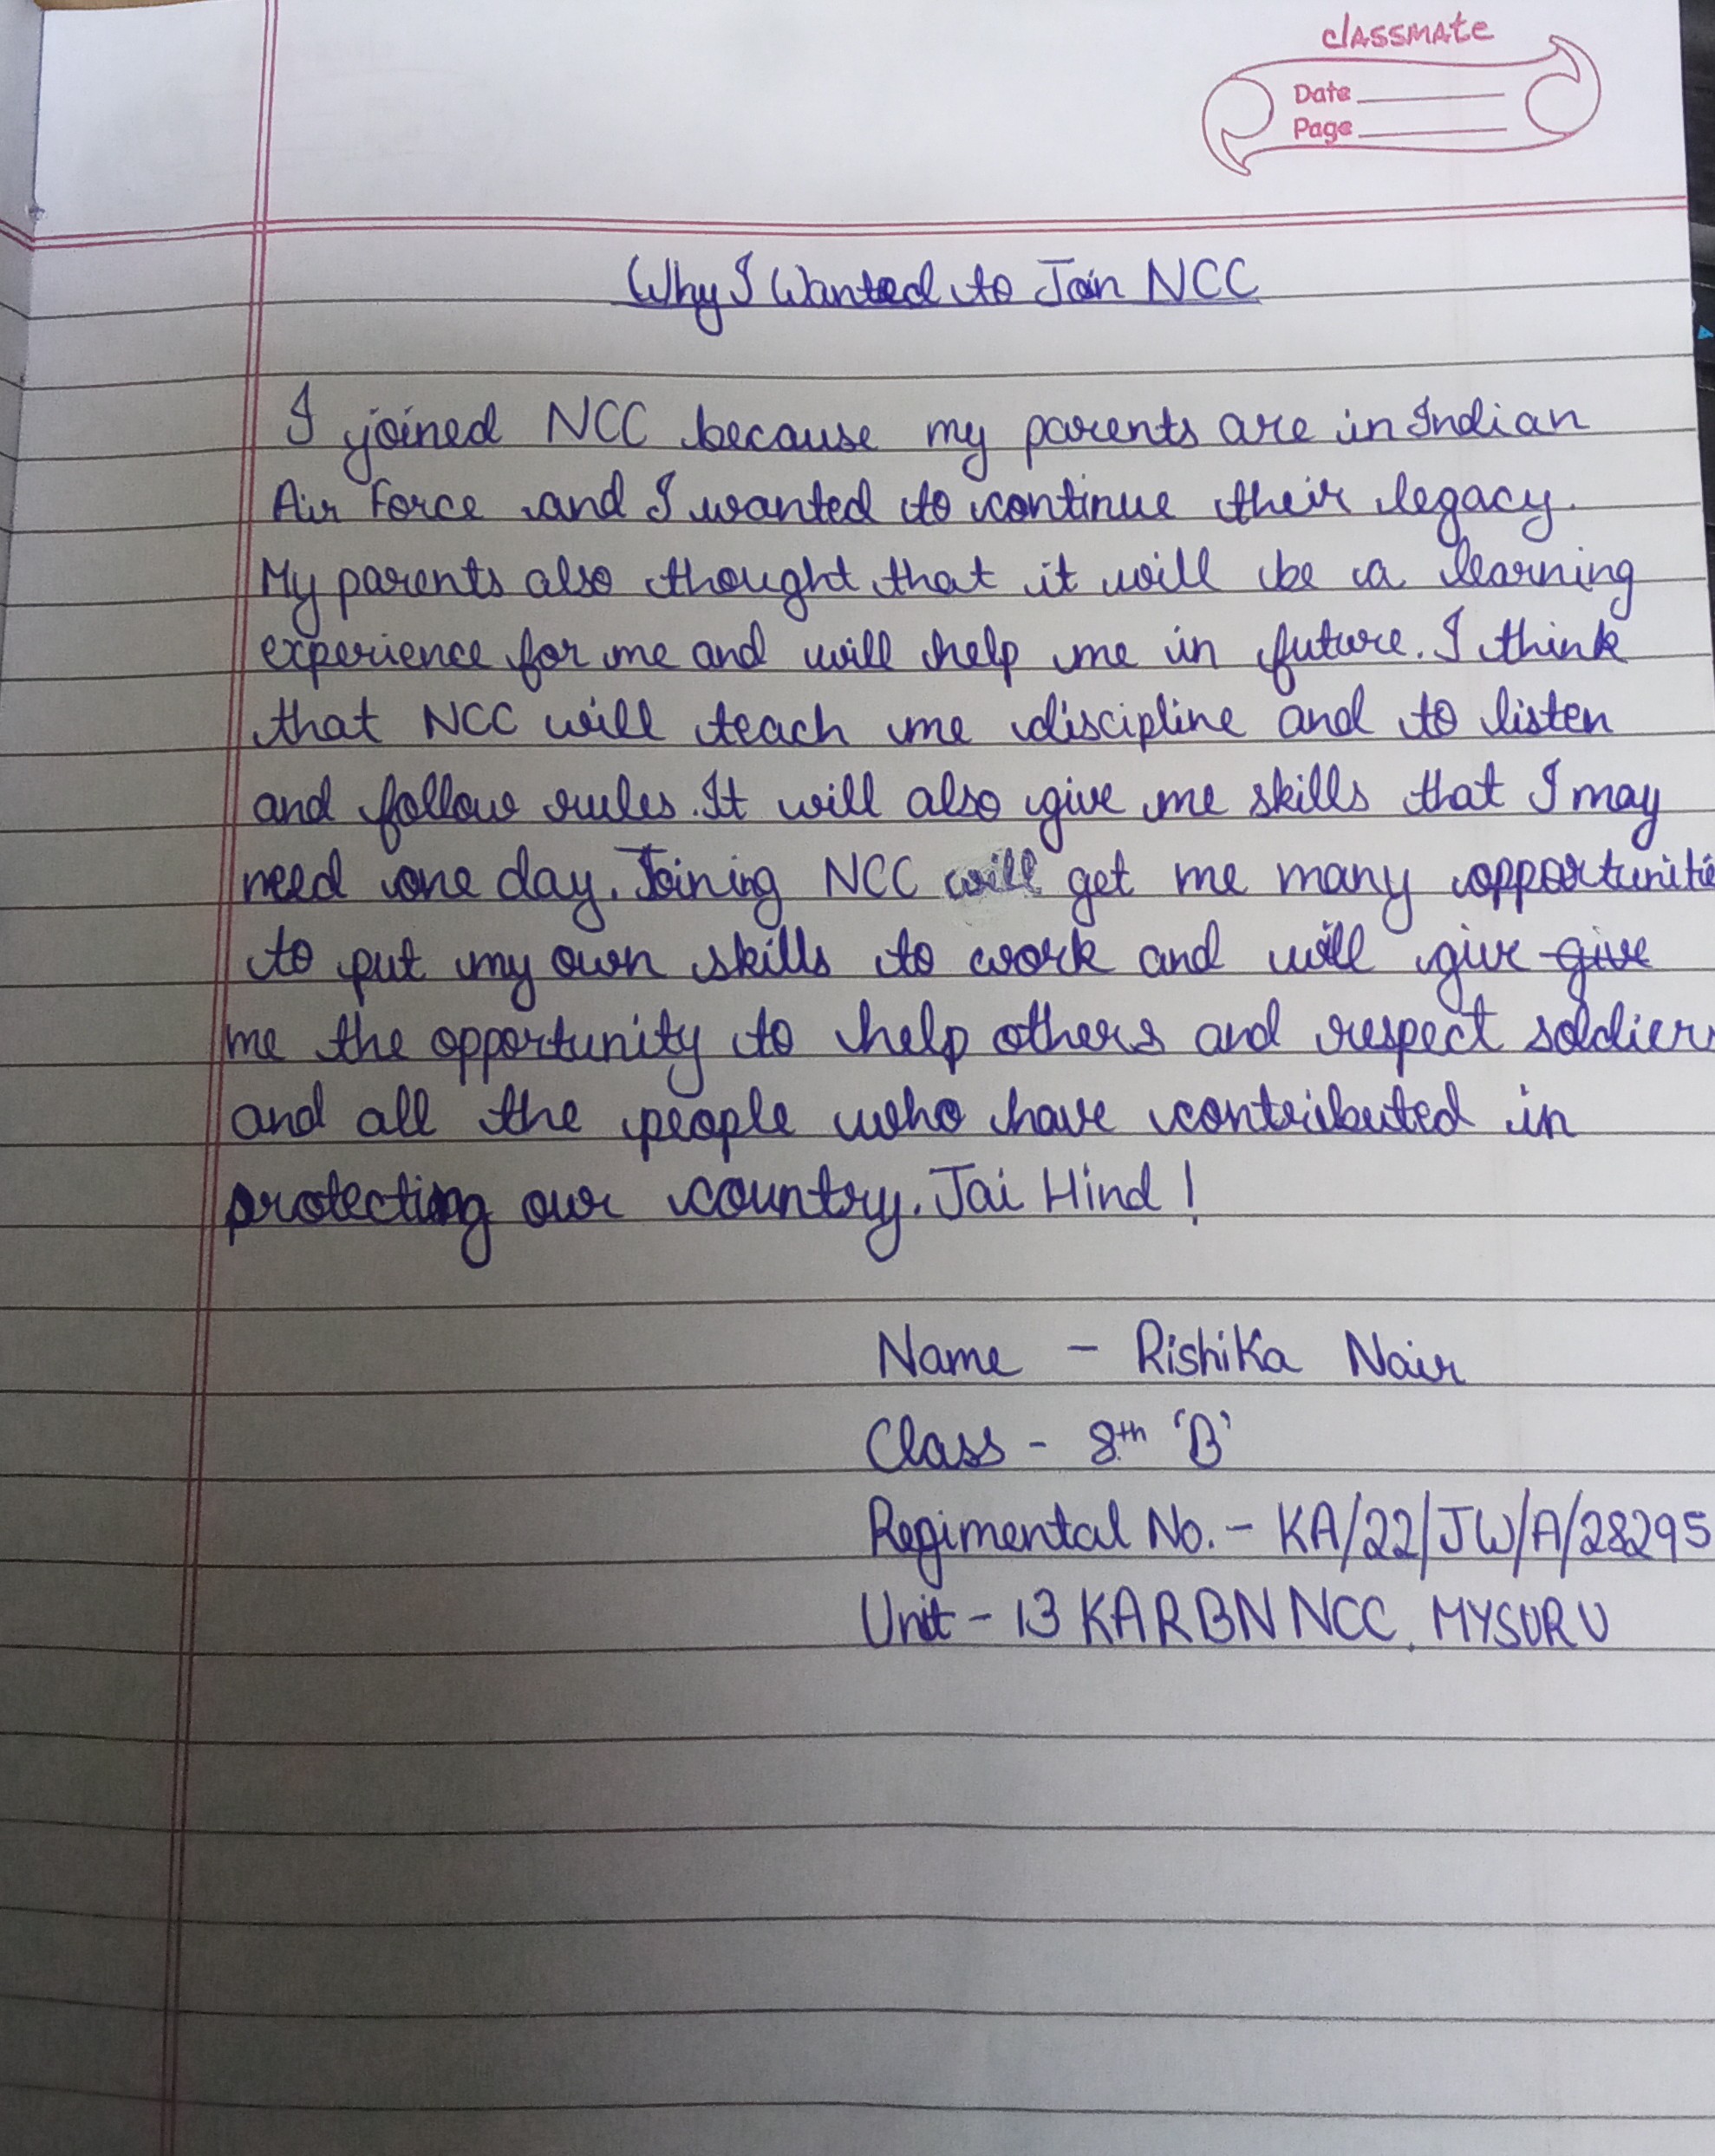 classmate
Date
Page
Why I Wanted to Join NCC
I joined NCC because my parents are in Indian
Air Force and I wanted to continue their legacy.
My parents also thought that it will be a learning
experience for me and will help me in future. I think
that NCC will teach me discipline and to listen
and follow rules. It will also give me skills that I may
need one day. Joining NCC will get me many opportunitie
to put my own skills to work and will give give
me the opportunity to help others and respect soldiers
and all the people who have contributed in
protecting our country. Jai Hind !
Name - Rishika Nair
Class - 8th 'B'
Regimental No. - KA/22/JW/A/28295
Unit - 13 KAR BN NCC, MYSURU